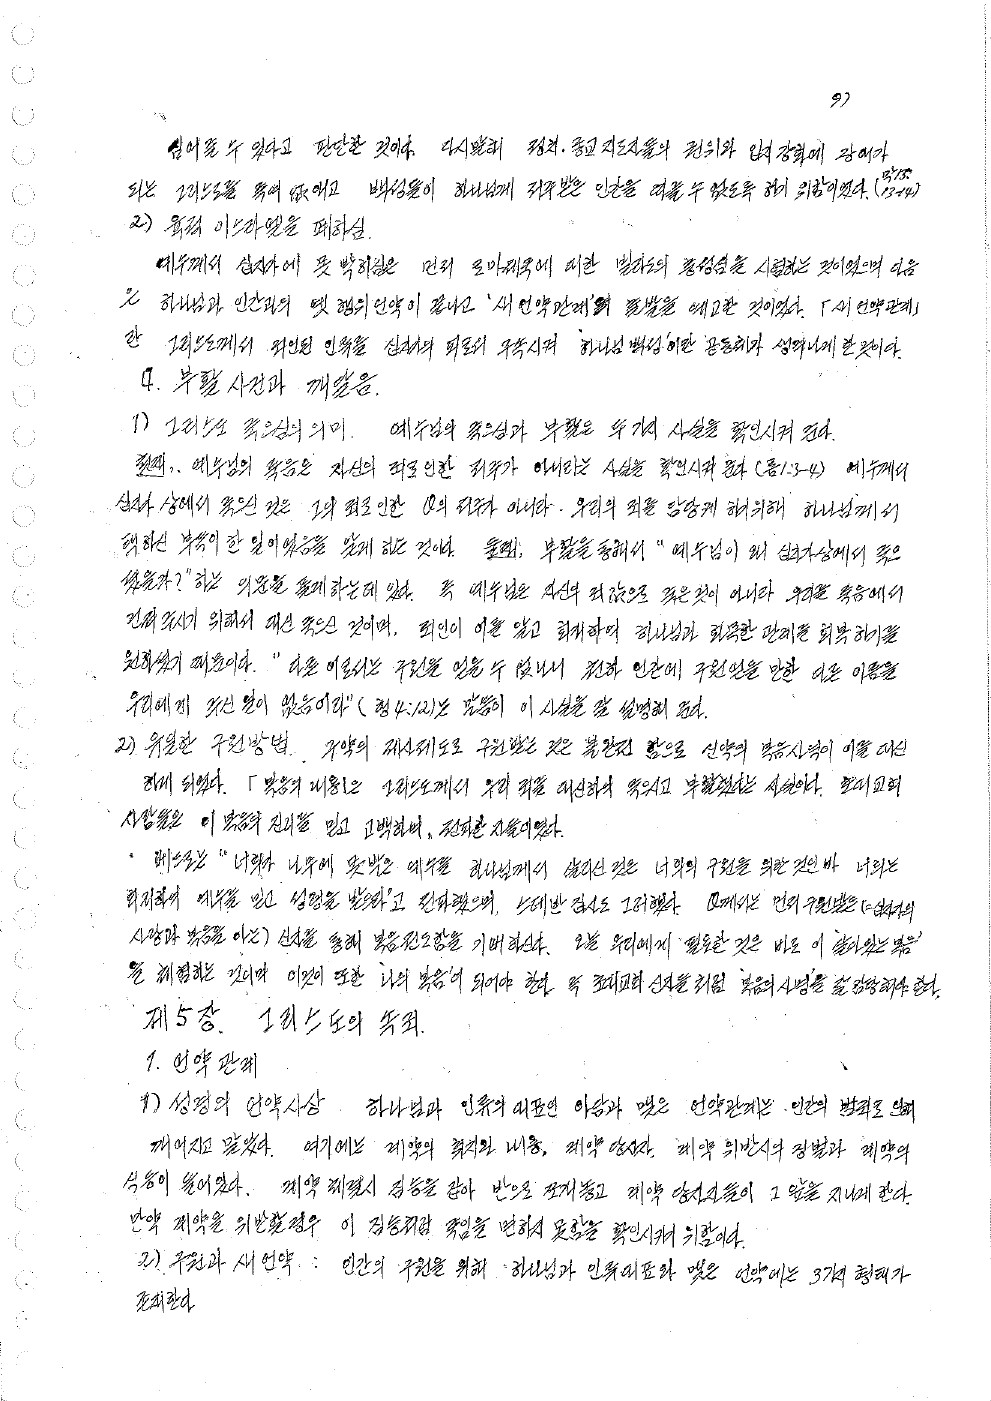 97
심어줄 수 있다고 판단한 것이다. 다시말해 정치·종교지도자들의 권위와 입지 강화에 장애가
되는 그리스도를 죽여 없애고 백성들이 하나님께 저주받은 인간을 따를 수 없도록 하기 위함이었다.
2) 육적 이스라엘을 폐하심.
예수께서 십자가에 못 박히심은 먼저 로마제국에 대한 빌라도의 충성심을 시험하는 것이었으며 다음
은 하나님과 인간과의 옛 행위언약이 끝나고 '새 언약관계'의 출발을 예고한 것이었다. 「새 언약관계」
란 그리스도께서 죄인된 인류를 십자가의 피로서 구속시켜 '하나님 백성'이란 공동체가 생겨나게 한 것이다.
9. 부활 사건과 깨달음.
1) 그리스도 죽으심의 의미. 예수님의 죽으심과 부활은 두가지 사실을 확인시켜 준다.
첫째, 예수님의 죽음은 자신의 죄로 인한 저주가 아니라는 사실을 확인시켜 준다 (롬1:3-4) 예수께서
십자가 상에서 죽으신 것은 그의 죄로 인한 저주가 아니라 우리의 죄를 담당케 하기위해 하나님께서
택하신 부득이 한 일이었음을 알게 하는 것이다. 둘째, 부활을 통해서 "예수님이 왜 십자가상에서 죽으
셨을까?" 하는 의문을 풀게하는데 있다. 즉 예수님은 자신의 죄값으로 죽은것이 아니라 우리를 죽음에서
건져 주시기 위해서 대신 죽으신 것이며, 죄인이 이를 알고 회개하여 하나님과 화목한 관계를 회복하기를
원하셨기 때문이다. "다른 이로서는 구원을 얻을 수 없나니 천하 인간에 구원얻을 만한 다른 이름을
우리에게 주신 일이 없음이라" (행4:12)는 말씀이 이 사실을 잘 설명해 준다.
2) 유일한 구원방법. 구약의 제사제도로 구원받는 것은 불완전 함으로 신약의 복음사역이 이를 대신
하게 되었다. 「복음의 내용」은 그리스도께서 우리 죄를 대신하여 죽으시고 부활했다는 사실이다. 초대교회
사람들은 이 복음의 진리를 믿고 고백하며, 전파한 자들이었다.
· 베드로는 "너희가 나무에 못박은 예수를 하나님께서 살리신 것은 너희의 구원을 위한것인바 너희는
회개하여 예수를 믿고 성령을 받으라"고 전파했으며, 스데반 집사도 그러했다. 께서는 먼저 구원받은(=십자가의
사랑과 복음을 아는) 신자를 통해 복음전도함을 기뻐하신다. 오늘 우리에게 필요한 것은 바로 이 '살아있는 복음'
을 체험하는 것이며 이것이 또한 '나의 복음'이 되어야 한다. 즉 초대교회 신자들처럼 '복음의 사명'을 잘 감당해야 한다.
제 5 장. 그리스도의 속죄.
1. 언약관계
1) 성경의 언약사상 하나님과 인류의 대표인 아담과 맺은 언약관계는 인간의 범죄로 인해
깨어지고 말았다. 여기에는 계약의 내용, 계약 당사자, 계약 위반시의 징벌과 계약의
이 들어있다. 계약 체결시 짐승을 잡아 반으로 쪼개놓고 계약 당사자들이 그 앞을 지나게 한다.
만약 계약을 위반할경우 이 짐승처럼 죽임을 면하지 못함을 확인시키기 위함이다.
2) 구원과 새 언약 : 인간의 구원을 위해 하나님과 인류대표와 맺은 언약에는 3가지 형태가
존재한다